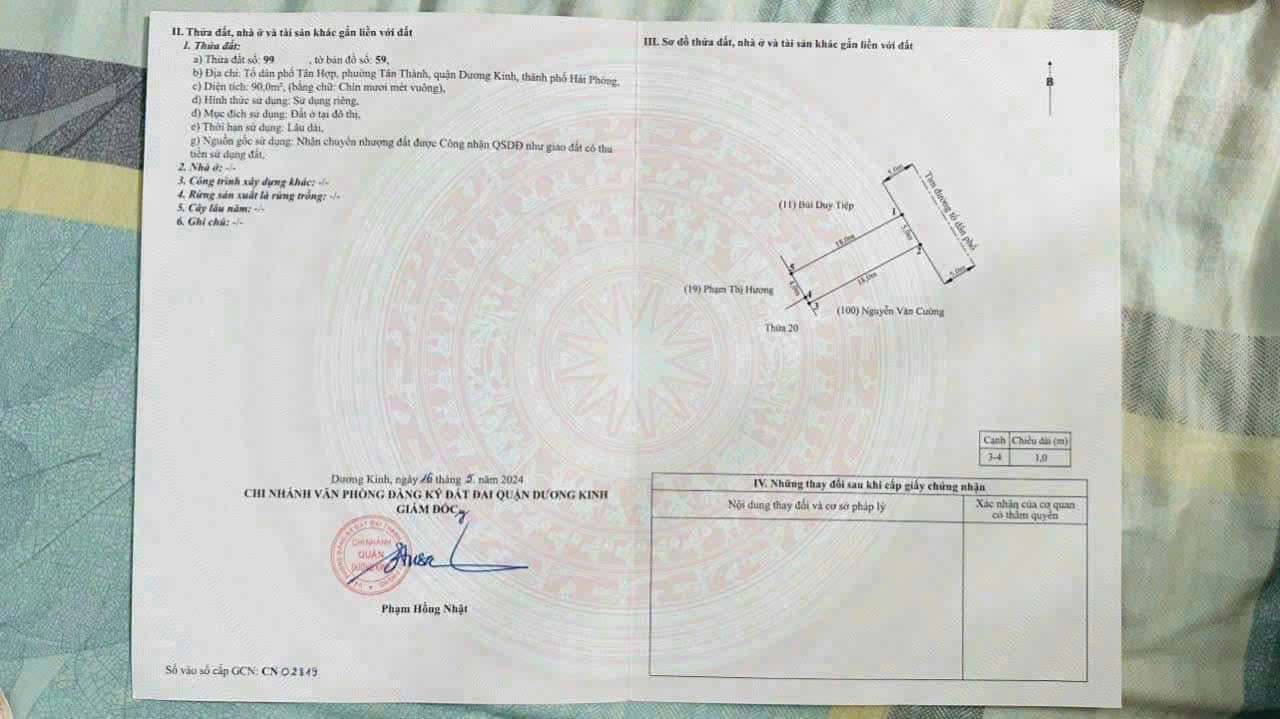 II. Thửa đất, nhà ở và tài sản khác gắn liền với đất
1. Thửa đất:
a) Thửa đất số: 99 , tờ bản đồ số: 59,
b) Địa chỉ: Tổ dân phố Tân Hợp, phường Tân Thành, quận Dương Kinh, thành phố Hải Phòng,
c) Diện tích: 90,0m², (bằng chữ: Chín mươi mét vuông),
d) Hình thức sử dụng: Sử dụng riêng,
đ) Mục đích sử dụng: Đất ở tại đô thị,
e) Thời hạn sử dụng: Lâu dài,
g) Nguồn gốc sử dụng: Nhận chuyển nhượng đất được Công nhận QSDĐ như giao đất có thu
tiền sử dụng đất,
2. Nhà ở: -/-
3. Công trình xây dựng khác: -/-
4. Rừng sản xuất là rừng trồng: -/-
5. Cây lâu năm: -/-
6. Ghi chú: -/-
Dương Kinh, ngày 16 tháng 5. năm 2024
CHI NHÁNH VĂN PHÒNG ĐĂNG KÝ ĐẤT ĐAI QUẬN DƯƠNG KINH
GIÁM ĐỐC
CHI NHÁNH
QUẬN
DƯƠNG KINH
Phạm Hồng Nhật
Số vào sổ cấp GCN: CN 02819
III. Sơ đồ thửa đất, nhà ở và tài sản khác gắn liền với đất
B
5,0m
Tim đường tổ dân phố
(11) Bùi Duy Tiệp
1
18,0m
5,0m
2
5
5,0m
(19) Phạm Thị Hương
4,0m
18,0m
4
3
(100) Nguyễn Văn Cường
Thửa 20
Cạnh Chiều dài (m)
3-4 1,0
IV. Những thay đổi sau khi cấp giấy chứng nhận
Nội dung thay đổi và cơ sở pháp lý
Xác nhận của cơ quan
có thẩm quyền